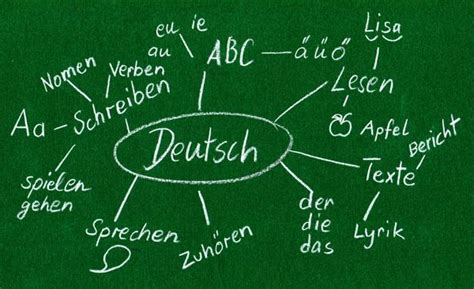 eu ie
au
ABC
äüö
Lisa
Lesen
Apfel
Nomen
Verben
Aa
Schreiben
spielen
gehen
Deutsch
Bericht
Texte
Lyrik
der
die
das
Zuhören
Sprechen